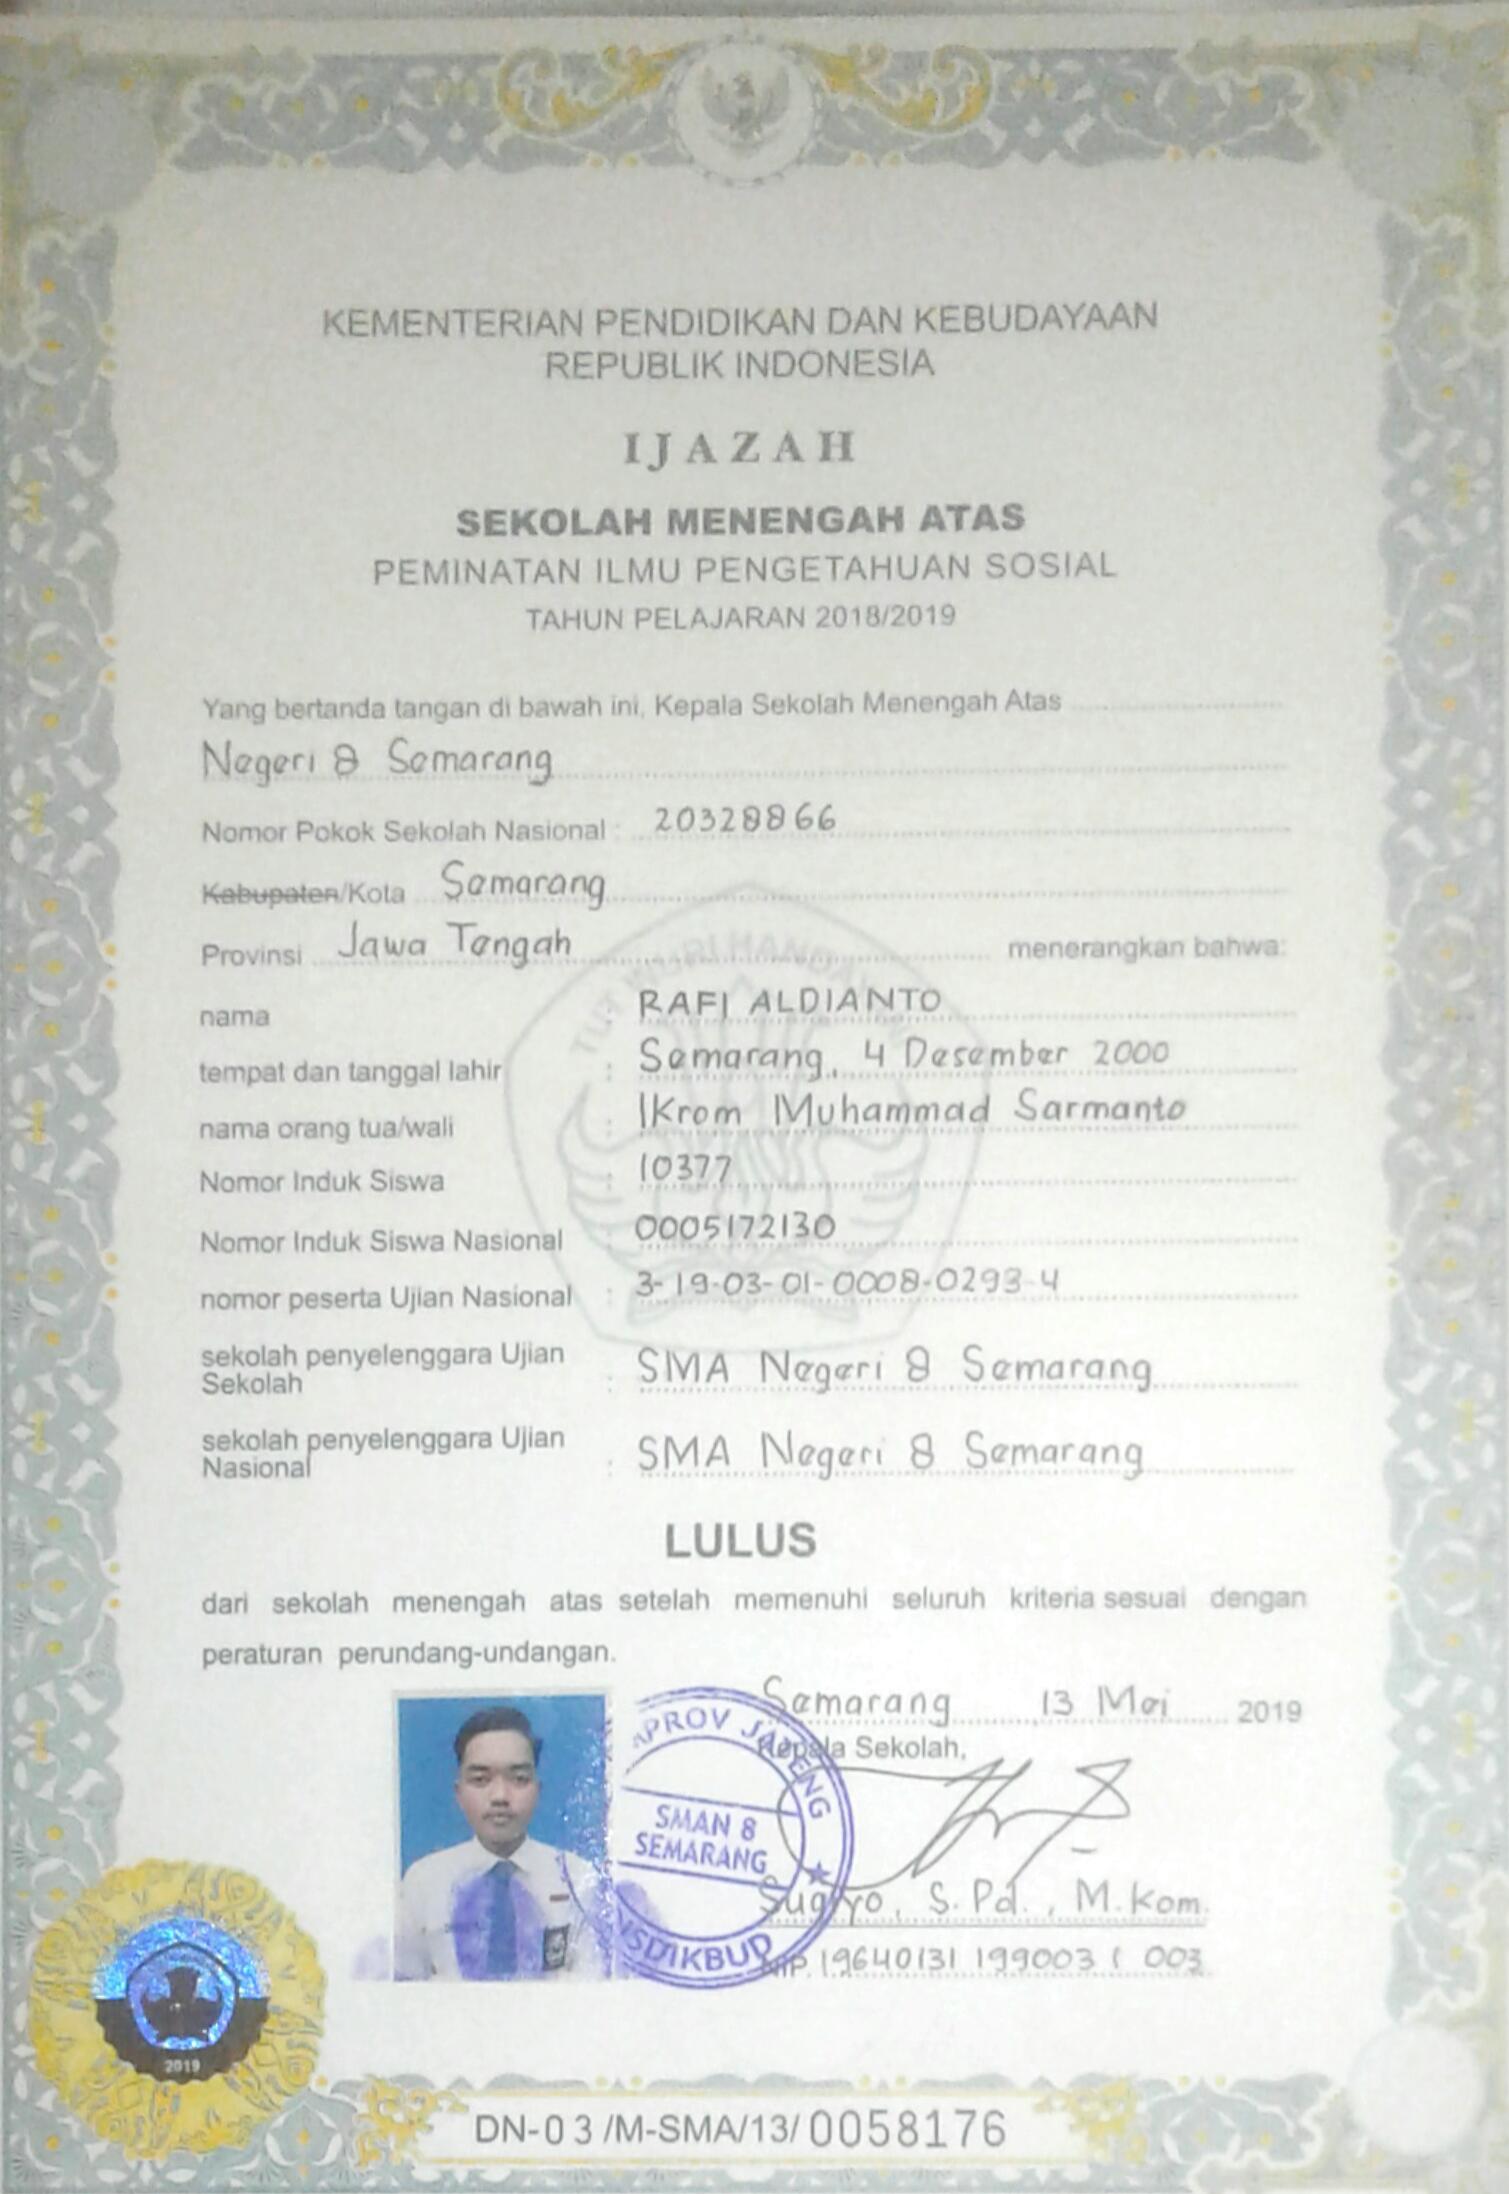 KEMENTERIAN PENDIDIKAN DAN KEBUDAYAAN
REPUBLIK INDONESIA
IJAZAH
SEKOLAH MENENGAH ATAS
PEMINATAN ILMU PENGETAHUAN SOSIAL
TAHUN PELAJARAN 2018/2019
Yang bertanda tangan di bawah ini, Kepala Sekolah Menengah Atas
Negeri 8 Semarang
Nomor Pokok Sekolah Nasional : 20328866
Kabupaten/Kota Semarang
Provinsi Jawa Tengah menerangkan bahwa:
nama : RAFI ALDIANTO
tempat dan tanggal lahir : Semarang, 4 Desember 2000
nama orang tua/wali : Ikrom Muhammad Sarmanto
Nomor Induk Siswa : 10377
Nomor Induk Siswa Nasional : 0005172130
nomor peserta Ujian Nasional : 3-19-03-01-0008-0293-4
sekolah penyelenggara Ujian
Sekolah : SMA Negeri 8 Semarang
sekolah penyelenggara Ujian
Nasional : SMA Negeri 8 Semarang
LULUS
dari sekolah menengah atas setelah memenuhi seluruh kriteria sesuai dengan
peraturan perundang-undangan.
Semarang, 13 Mei 2019
Kepala Sekolah,
PROV JATENG
SMAN 8
SEMARANG
Sugiyo, S.Pd., M.Kom.
NIP. 19640131 199003 1 003
2019
DN-03/M-SMA/13/0058176